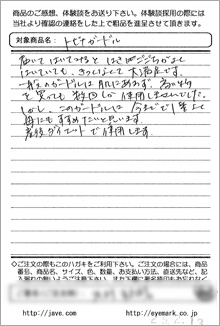 商品のご感想、体験談をお送り下さい。体験談採用の際には
当社より確認の連絡をした上で粗品を進呈させて頂きます。
対象商品名: トビナガードル
届いてはいてみるとはきごこちがよく
はいていても、きつくなくて大満足です。
一般のガードルは肌にあわず、高い物
を買っても数回しか使用しませんでした。
しかし、このガードルは今までで1番よく
母にもすすめたいと思います。
産後ダイエットで使用します。
◇ご注文の際もこのハガキをご利用下さい。ご注文の場合には、商品
番号、商品名、サイズ、色、数量、お支払い方法、直送先など、記
http://jave.com http://eyemark.co.jp